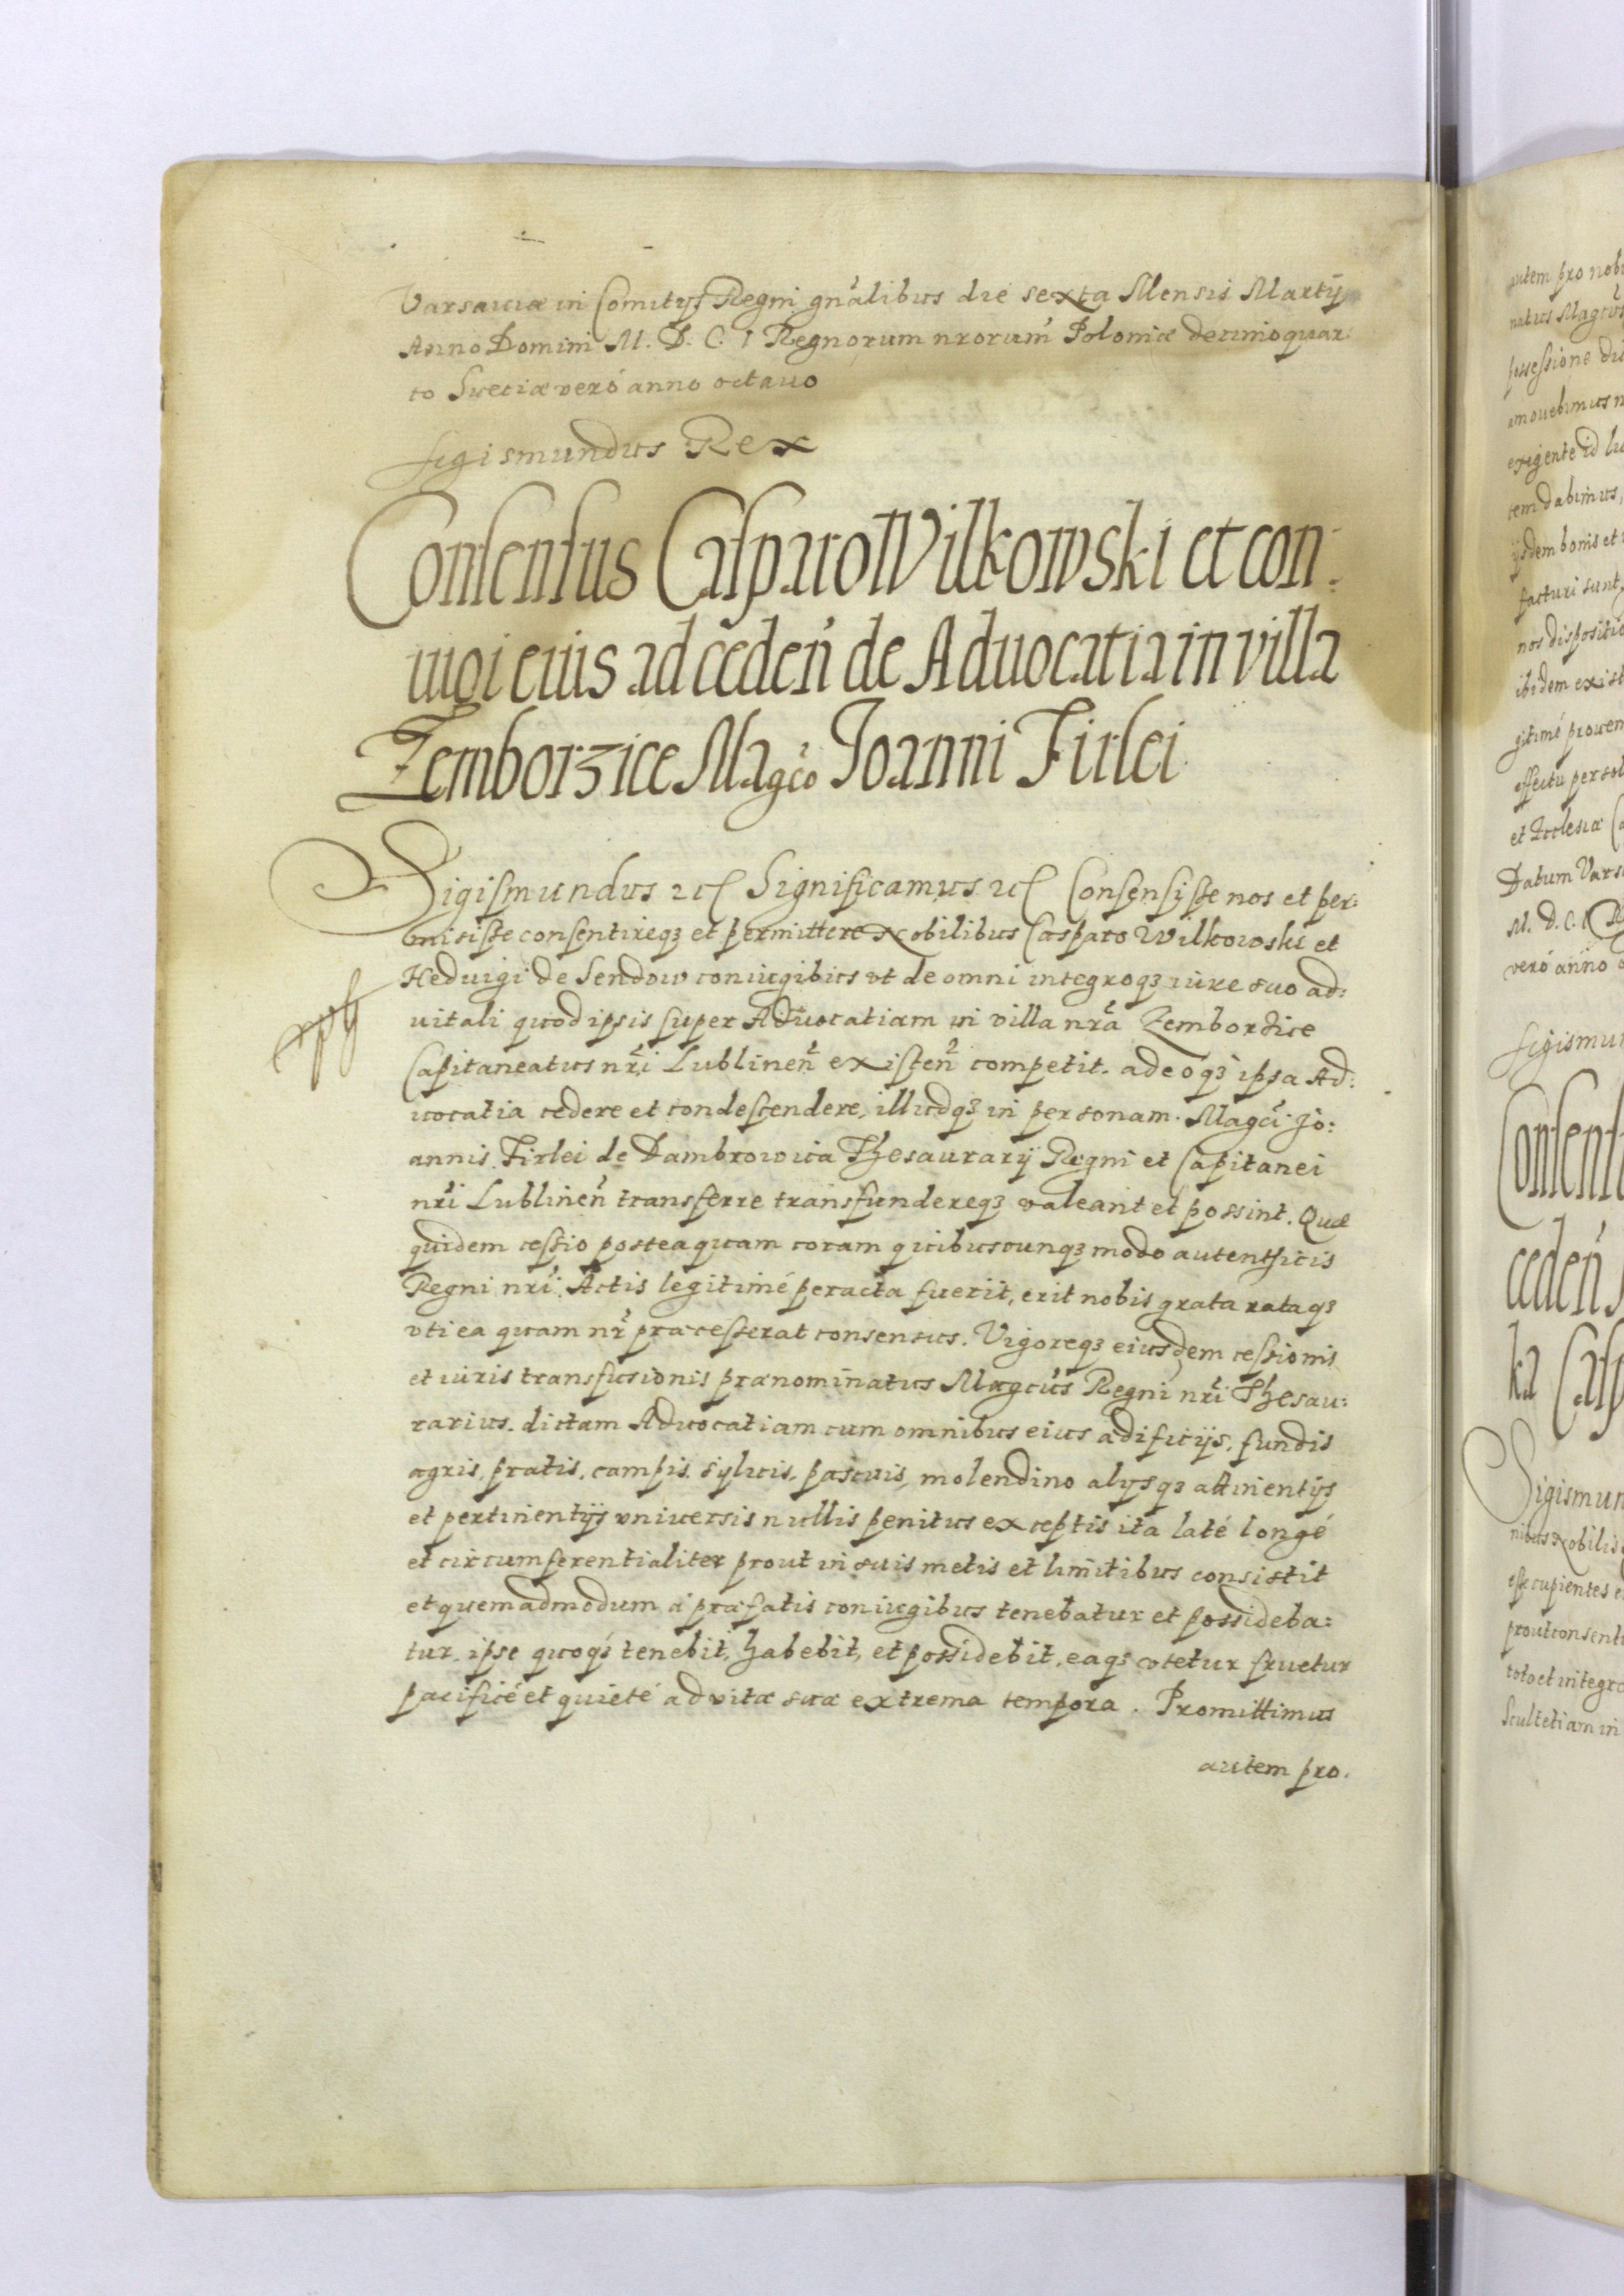 Varsauiæ in Comitijs Regni gnalibus die sexta Mensis Martij
Anno Domini M. D. C. I Regnorum nrorum Poloniæ decimoquar
to Sueciæ veró anno octauo
Sigismundus Rex
Consensus Casparo Wilkowski et con:
iugi eius ad ceden de Aduocatia in villa
Zemborzice Magco Ioanni Firlei
Sigismundus etc Significamus etc Consensisse nos et per:
misisse consentireqz et permittere Nobilibus Casparo Wilkowski et
Heduigi de Sendow coniugibus vt de omni integroqz iure suo ad:
uitali quod ipsis super Aduocatiam in villa nra Zembordice
Capitaneatus nri Lublinen existen competit. adeoqz ipsa Ad:
uocatia cedere et condescendere, illudqz in personam Magci Jo:
annis Firlei de Dambrowica Thesaurarij Regni et Capitanei
nri Lublinen transferre transfundereqz valeant et possint. Quæ
quidem cessio posteaquam coram quibuscunqz modo autenthicis
Regni nri Actis legitimé peracta fuerit, erit nobis grata rataqz
vti ea quam nr præcesserat consensus. Vigoreqz eiusdem cessionis
et iuris transfusionis prænominatus Magcus Regni nri Thesau:
rarius. dictam Aduocatiam cum omnibus eius ædificijs, fundis
agris, pratis, campis, syluis, pascuis, molendino alijsqz attinentijs
et pertinentijs vniuersis nullis penitus exceptis ita laté longé
et circumferentialiter prout in suis metis et limitibus consistit
et quemadmodum á præfatis coniugibus tenebatur et possideba:
tur. ipse quoqz tenebit, habebit, et possidebit, eaqz vtetur fruetur
pacificé et quieté ad vitæ suæ extrema tempora. Promittimus
autem pro.
autem pro nobi
natus Magcus
possessione
amouebimus n
exigente id
tem dabimus,
ijsdem bonis et
facturi sunt,
nos
ibidem exist
gitimé prouen
effectu persol
et Ecclesiæ
Datum Vars
M. D. C. I
veró anno
Sigismun
Consens
ceden
ka Casp
Sigismun
Nobilis
esse cupientes
prout consent
toto et integro
Scultetiam in